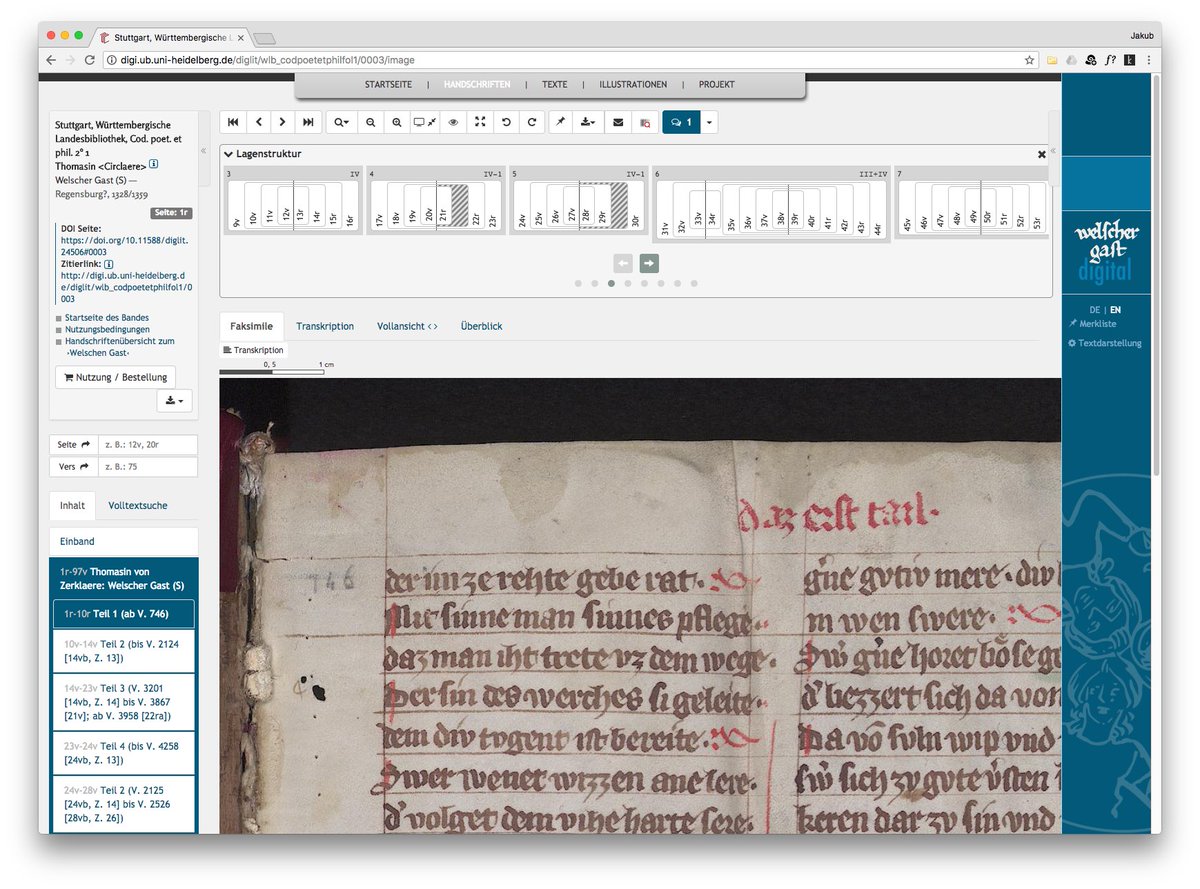 Stuttgart, Württembergische L
Jakub
digi.ub.uni-heidelberg.de/diglit/wlb_codpoetetphilfol1/0003/image
STARTSEITE | HANDSCHRIFTEN | TEXTE | ILLUSTRATIONEN | PROJEKT
Stuttgart, Württembergische
Landesbibliothek, Cod. poet. et
phil. 2° 1
Thomasin <Circlaere>
Welscher Gast (S) —
Regensburg?, 1328/1359
Seite: 1r
DOI Seite:
https://doi.org/10.11588/diglit.
24506#0003
Zitierlink:
http://digi.ub.uni-heidelberg.d
e/diglit/wlb_codpoetetphilfol1/0
003
Startseite des Bandes
Nutzungsbedingungen
Handschriftenübersicht zum
›Welschen Gast‹
Nutzung / Bestellung
Seite z. B.: 12v, 20r
Vers z. B.: 75
Inhalt Volltextsuche
Einband
1r-97v Thomasin von
Zerklaere: Welscher Gast (S)
1r-10r Teil 1 (ab V. 746)
10v-14v Teil 2 (bis V. 2124
[14vb, Z. 13])
14v-23v Teil 3 (V. 3201
[14vb, Z. 14] bis V. 3867
[21v]; ab V. 3958 [22ra])
23v-24v Teil 4 (bis V. 4258
[24vb, Z. 13])
24v-28v Teil 2 (V. 2125
[24vb, Z. 14] bis V. 2526
[28vb, Z. 26])
1
Lagenstruktur
3 IV 4 IV-1 5 IV-1 6 III+IV 7
9v 10v 11v 12v 13r 14r 15r 16r
17v 18v 19v 20v 21r 22r 23r
24v 25v 26v 27v 28r 29r 30r
31v 32v 33v 34r 35v 36v 37v 38v 39r 40r 41r 42r 43r 44r
45v 46v 47v 48v 49v 50r 51r 52r 53r
Faksimile Transkription Vollansicht Überblick
Transkription
0, 5 1 cm
daz erst tail.
746
der im ze rehte gebe rat.
Mit sinne man sinnes pflege.
daz man iht trete vz dem wege.
Der sin des werches si geleite.
dem div tvgent ist bereite.
Swer wener wizzen ane lere.
d' volget dem vihe harte sere.
gv̂e gvtiv mere. div
m wen swere.
Sw' gv̂e horet bôse
d' bezzert sich da von
Da vō svln wip vnd
sw' sich zv gvte
keren dar zv sin vnd
welscher
gast
digital
DE | EN
Merkliste
Textdarstellung